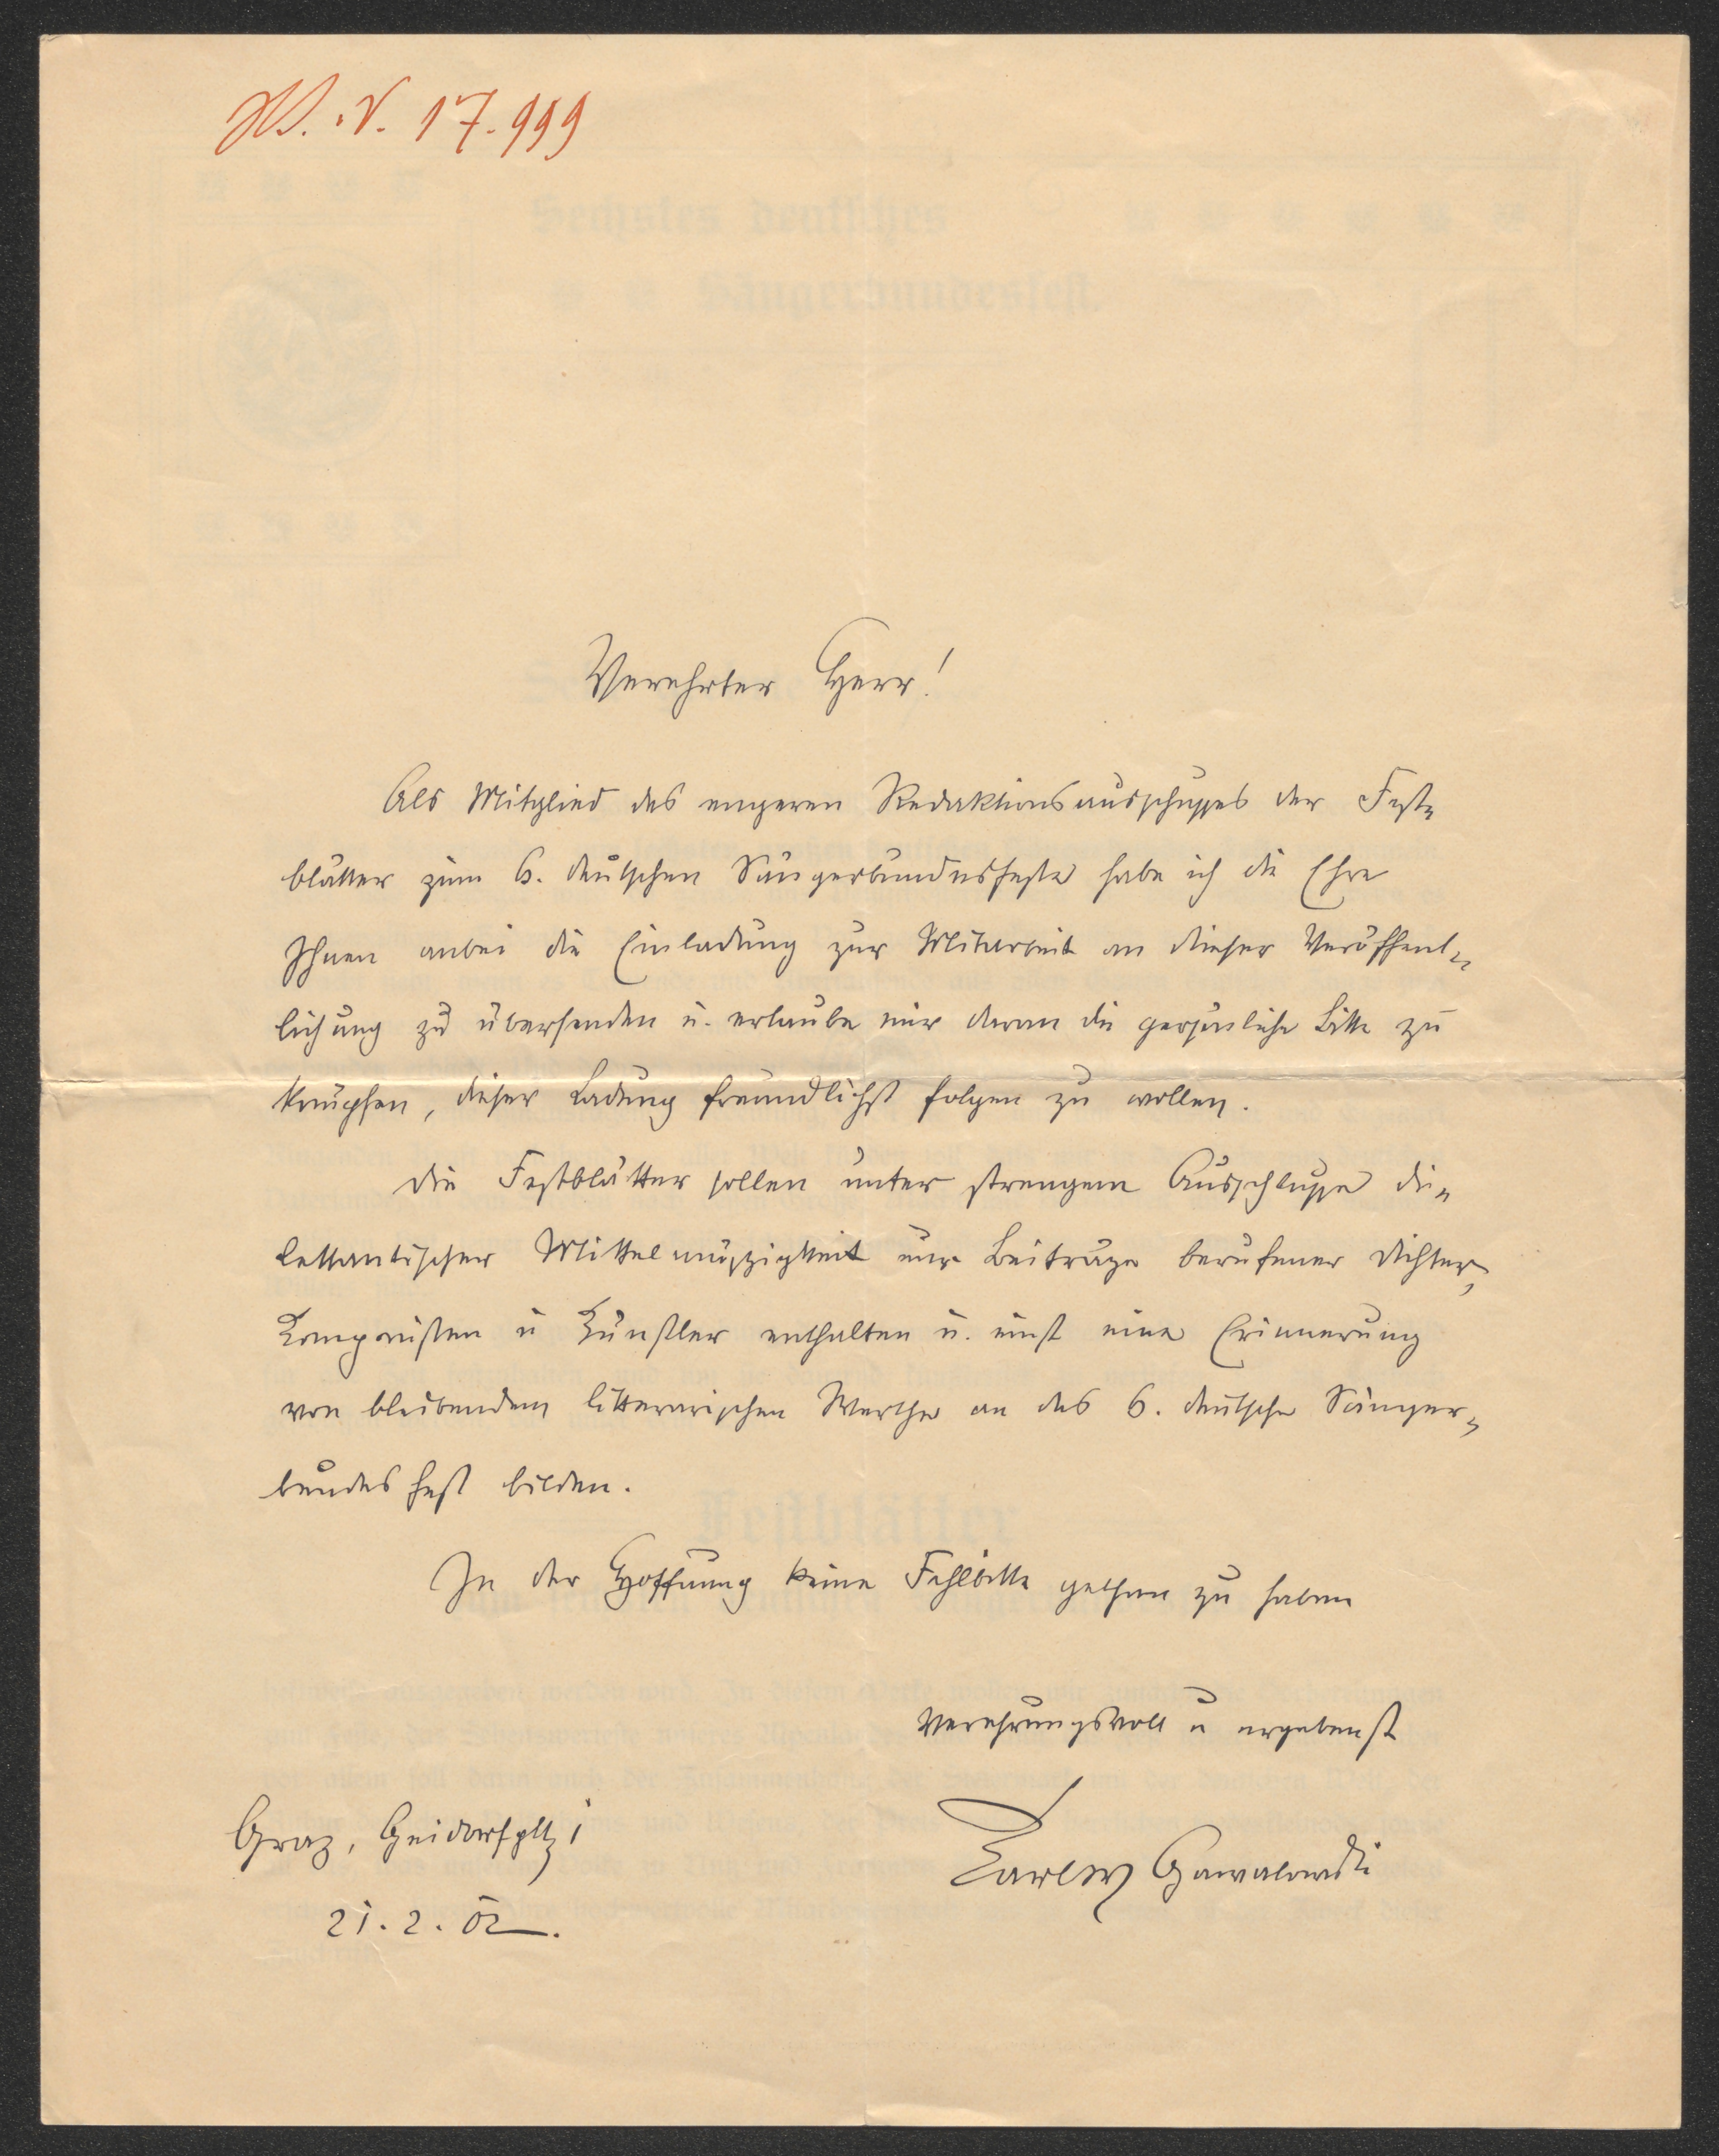 W. N. 17.999
Verehrter Herr!
Als Mitglied des engeren Redaktionsausschusses der Fest=
blätter zum 6. deutschen Sängerbundesfeste habe ich die Ehre
Ihnen anbei die Einladung zur Mitarbeit an dieser Veröffent=
lichung zu übersenden u. erlaube mir daran die persönliche Bitte zu
knüpfen, dieser Ladung freundlichst folgen zu wollen.
Die Festblätter sollen unter strengem Ausschlusse di=
lettantischer Mittelmäszigkeit nur Beiträge berufener Dichter,
Komponisten u Künstler enthalten u. einst eine Erinnerung
von bleibendem litterarischen Werthe an das 6. deutsche Sänger=
bundesfest bilden.
In der Hoffnung keine Fehlbitte gethan zu haben
Verehrungsvoll u ergebenst
Graz, Geidorfpltz 1
Karl W Gawalowski
21. 2. 02.